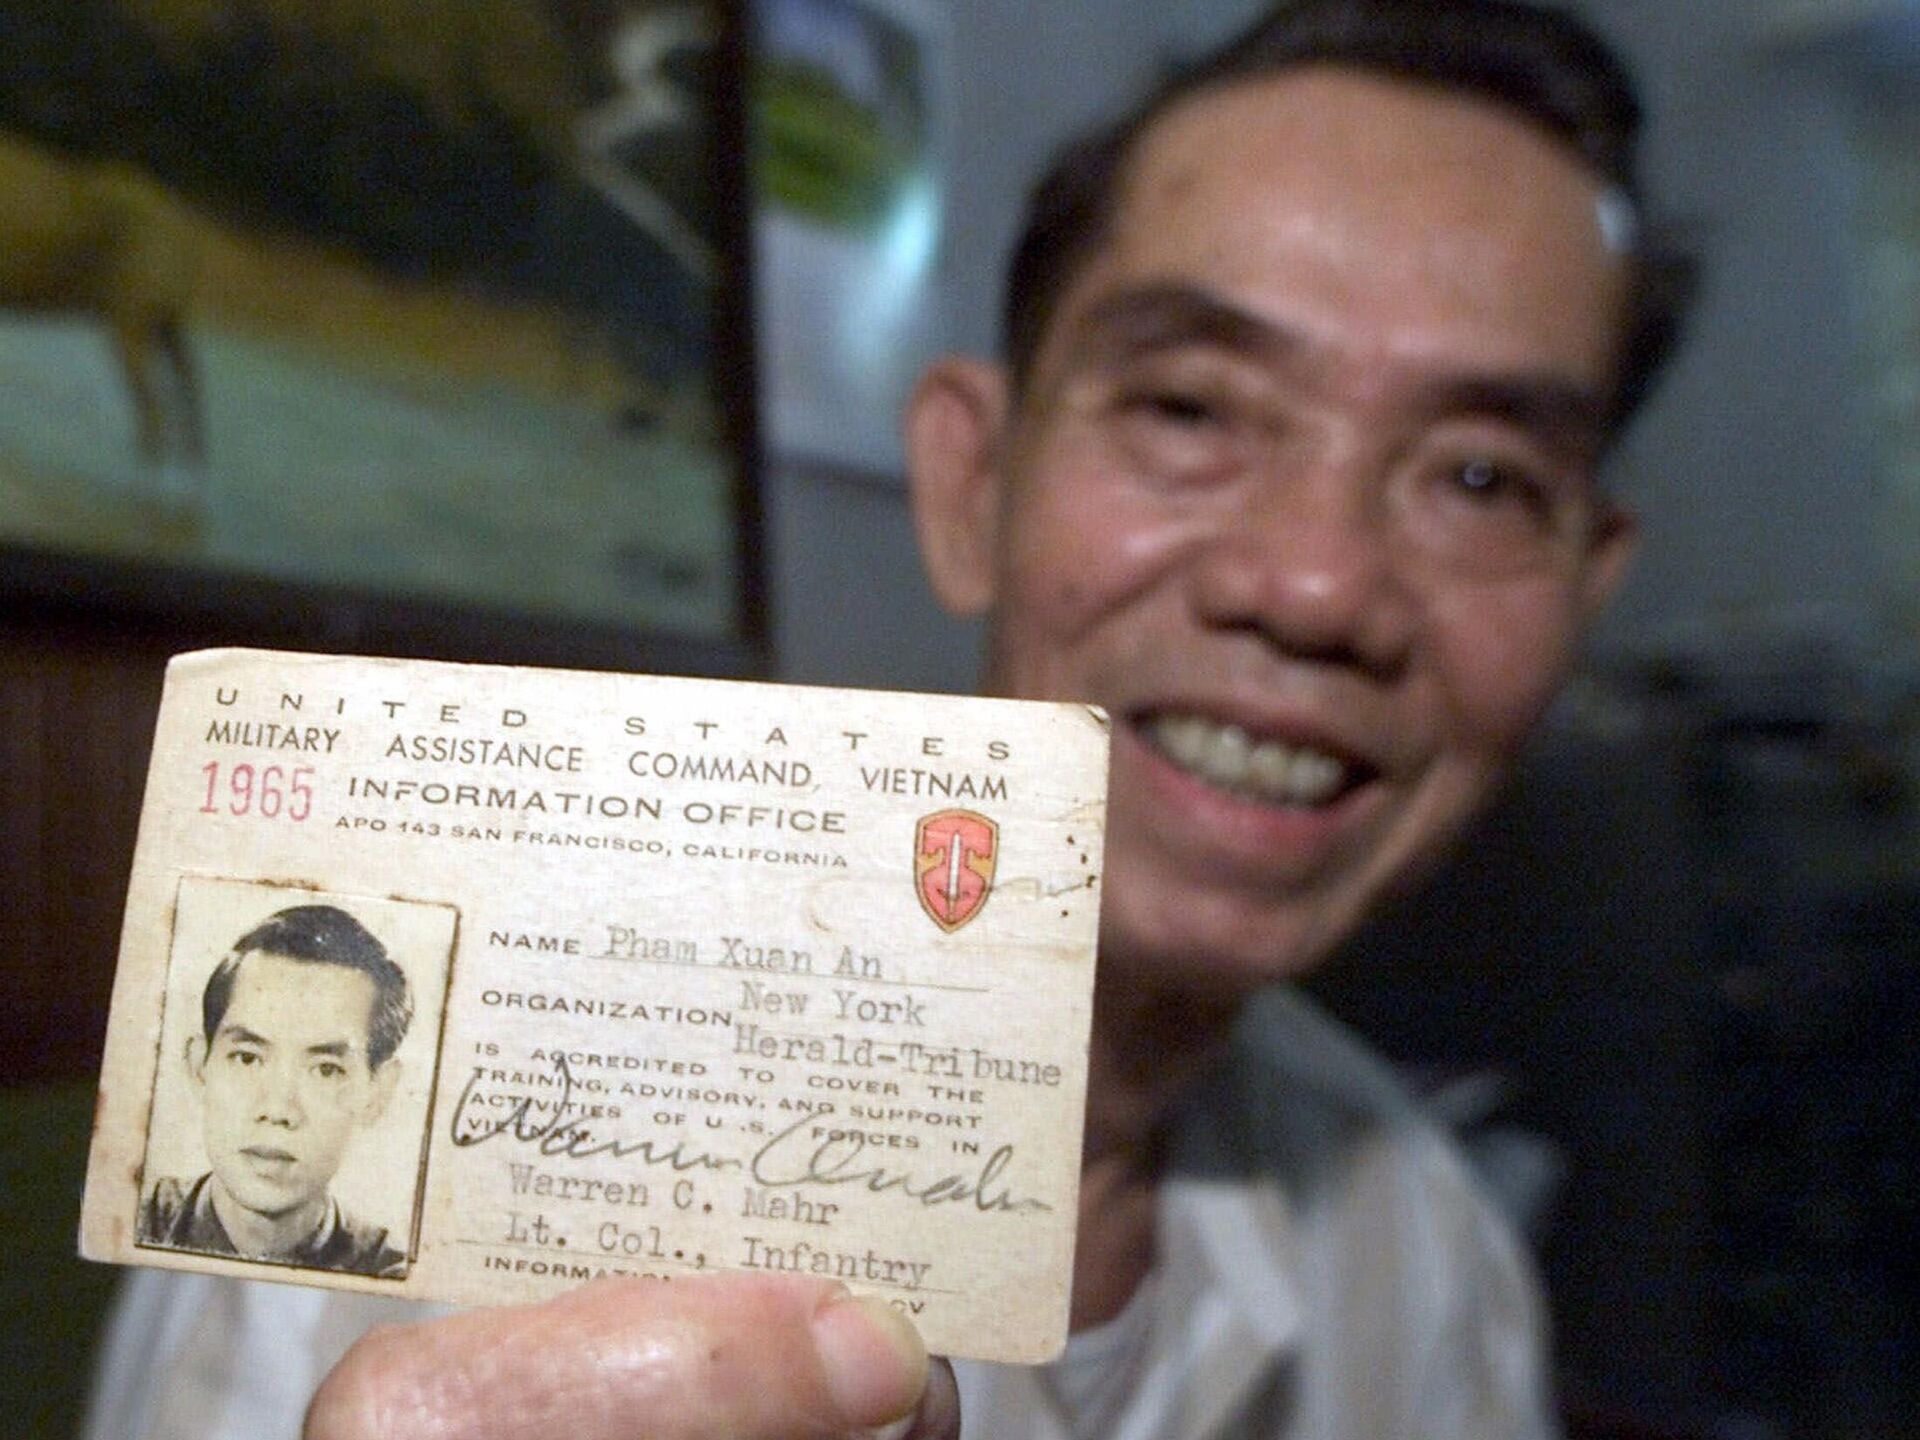 UNITED STATES
MILITARY ASSISTANCE COMMAND, VIETNAM
1965 INFORMATION OFFICE
APO 143 SAN FRANCISCO, CALIFORNIA
NAME Pham Xuan An
ORGANIZATION New York
Herald-Tribune
IS ACCREDITED TO COVER THE
TRAINING, ADVISORY, AND SUPPORT
ACTIVITIES OF U.S. FORCES IN
VIETNAM.
Warren C. Mahr
Lt. Col., Infantry